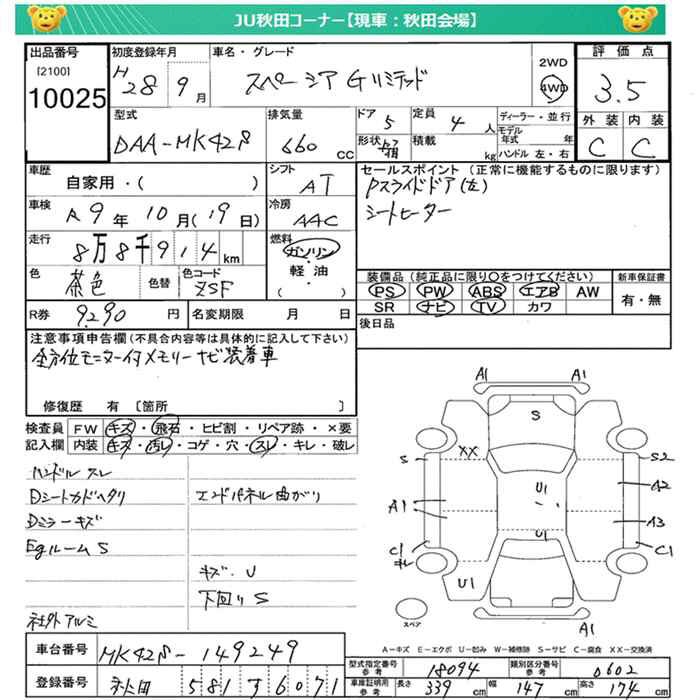 JU秋田コーナー【現車：秋田会場】
出品番号
[2100]
10025
初度登録年月
H28 9月
車名・グレード
スペーシア Gリミテッド
2WD
4WD
評価点
3.5
外装 内装
C C
型式
DAA-MK42S
排気量
660 cc
ドア 5
定員 4 人
形状
積載 kg
ディーラー・並行
モデル年式 年
ハンドル 左・右
車歴
自家用・( )
シフト
AT
セールスポイント (正常に機能するものに限ります)
Pスライドドア(左)
シートヒーター
車検
R9年10月(19日)
冷房
AAC
走行
8万8千914km
燃料
ガソリン・
軽・油
( )
色
茶色
色替
色コード
ZSF
装備品 (純正品に限り○をつけてください)
PS PW ABS エアB AW
SR ナビ TV カワ
新車保証書
有・無
R券 9290 円
名変期限 月 日
後日品
注意事項申告欄(不具合内容等は具体的に記入して下さい)
全方位モニター付メモリーナビ装着車
修復歴 有 〔箇所 〕
検査員
記入欄
FW キズ・飛石・ヒビ割・リペア跡・×要
内装 キズ・汚れ・コゲ・穴・スレ・キレ・破レ
ハンドルスレ
Dシートカドヘタリ
Dミラーキズ
EgルームS
社外アルミ
エンドパネル曲がり
キズ・U
下回りS
A1 A1
S
XX
S S2
U1
A2
A1
A3
U1
C1 C1
キレ
U1
A1
スペア
A－キズ E－エクボ U－凹み W－補修跡 S－サビ C－腐食 XX－交換済
車台番号
MK42S-149249
登録番号
秋田 581 す 6071
型式指定番号
参考
18094
類別区分番号
参考
0602
車庫証明用
参考
長さ 339cm
幅 147cm
高さ 174cm